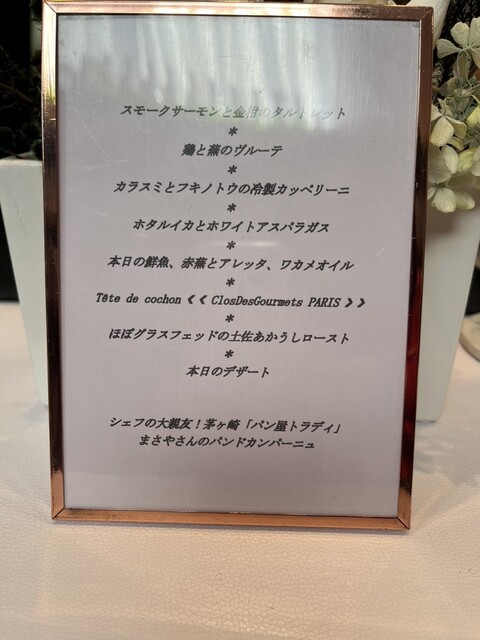 スモークサーモンと金柑のタルトレット
*
鶏と蕪のヴルーテ
*
カラスミとフキノトウの冷製カッペリーニ
*
ホタルイカとホワイトアスパラガス
*
本日の鮮魚、赤蕪とアレッタ、ワカメオイル
*
Tête de cochon《《 ClosDesGourmets PARIS 》》
*
ほぼグラスフェッドの土佐あかうしロースト
*
本日のデザート
シェフの大親友！茅ヶ崎「パン屋トラディ」
まさやさんのパンドカンパーニュ